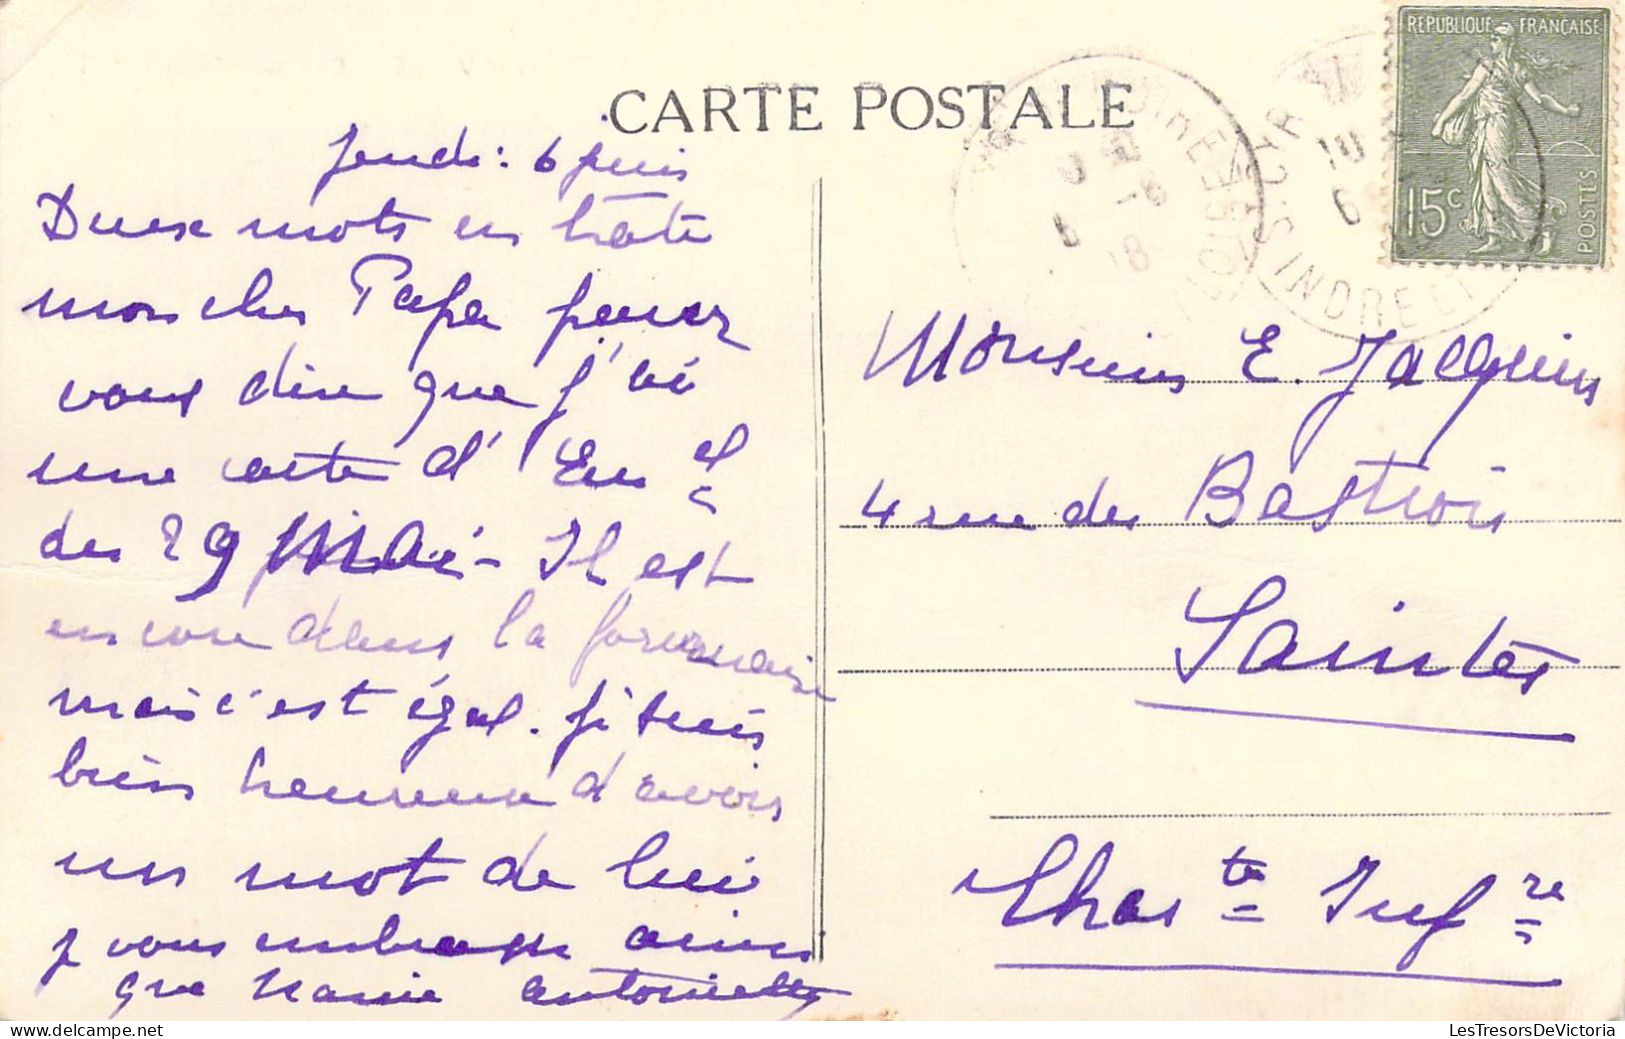 CARTE POSTALE
RÉPUBLIQUE FRANÇAISE
15c
POSTES
ST CYR S. INDRE ET
10
6
18
jeudi : 6 juin
Deux mots en hâte
mon cher Papa pour
vous dire que j'ai
une carte d'Em el
du 29 Mai - Il est
encore dans la fournaise
mais c'est égal. Je suis
bien heureuse d'avoir
un mot de lui
je vous embrasse ainsi
que Mamie Antoinette
Monsieur E. Jacquin
4 rue des
Saintes
Char te Inf re
LesTresorsDeVictoria